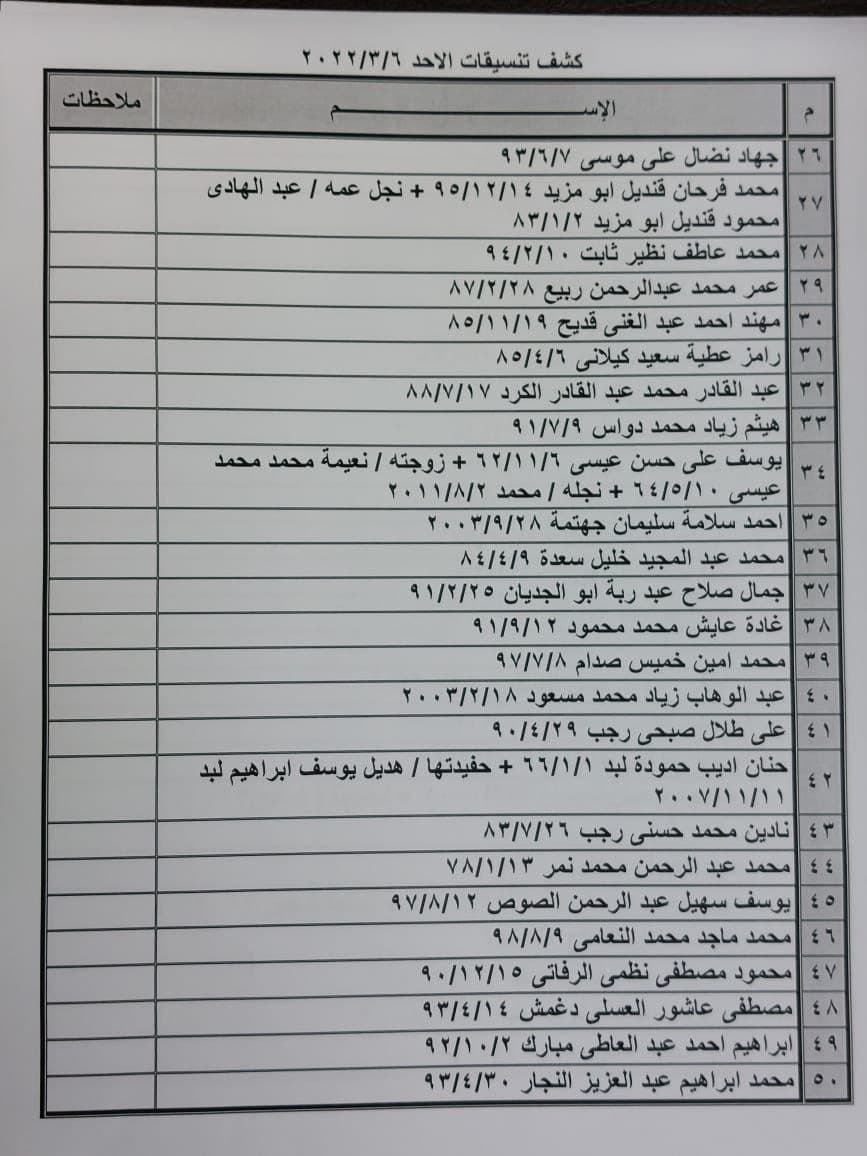 كشف تنسيقات الاحد ٢٠٢٢/٣/٦
م الإســـم ملاحظات
٢٦ جهاد نضال على موسى ٩٣/٦/٧
٢٧ محمد فرحان قنديل ابو مزيد ٩٥/١٢/١٤ + نجل عمه / عبد الهادى
محمود قنديل ابو مزيد ٨٣/١/٢
٢٨ محمد عاطف نظير ثابت ٩٤/٢/١٠
٢٩ عمر محمد عبدالرحمن ربيع ٨٧/٢/٢٨
٣٠ مهند احمد عبد الغنى قديح ٨٥/١١/١٩
٣١ رامز عطية سعيد كيلانى ٨٥/٤/٦
٣٢ عبد القادر محمد عبد القادر الكرد ٨٨/٧/١٧
٣٣ هيثم زياد محمد دواس ٩١/٧/٩
٣٤ يوسف على حسن عيسى ٦٢/١١/٦ + زوجته / نعيمة محمد محمد
عيسى ٦٤/٥/١٠ + نجله / محمد ٢٠١١/٨/٢
٣٥ احمد سلامة سليمان جهتمة ٢٠٠٣/٩/٢٨
٣٦ محمد عبد المجيد خليل سعدة ٨٤/٤/٩
٣٧ جمال صلاح عبد ربة ابو الجديان ٩١/٢/٢٥
٣٨ غادة عايش محمد محمود ٩١/٩/١٢
٣٩ محمد امين خميس صدام ٩٧/٧/٨
٤٠ عبد الوهاب زياد محمد مسعود ٢٠٠٣/٢/١٨
٤١ على طلال صبحى رجب ٩٠/٤/٢٩
٤٢ حنان اديب حمودة لبد ٦٦/١/١ + حفيدتها / هديل يوسف ابراهيم لبد
٢٠٠٧/١١/١١
٤٣ نادين محمد حسنى رجب ٨٣/٧/٢٦
٤٤ محمد عبد الرحمن محمد نمر ٧٨/١/١٣
٤٥ يوسف سهيل عبد الرحمن الصوص ٩٧/٨/١٢
٤٦ محمد ماجد محمد النعامى ٩٨/٨/٩
٤٧ محمود مصطفى نظمى الرفاتى ٩٠/١٢/١٥
٤٨ مصطفى عاشور العسلى دغمش ٩٣/٤/١٤
٤٩ ابراهيم احمد عبد العاطى مبارك ٩٢/١٠/٢
٥٠ محمد ابراهيم عبد العزيز النجار ٩٣/٤/٣٠